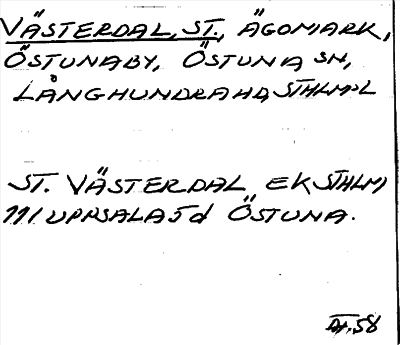 VÄSTERDAL, ST., ÄGOMARK,
ÖSTUNABY, ÖSTUNA SN,
LÅNGHUNDRA HD, STHLMS L
ST. VÄSTERDAL EK STHLM
111 UPPSALA 5 d ÖSTUNA.
58